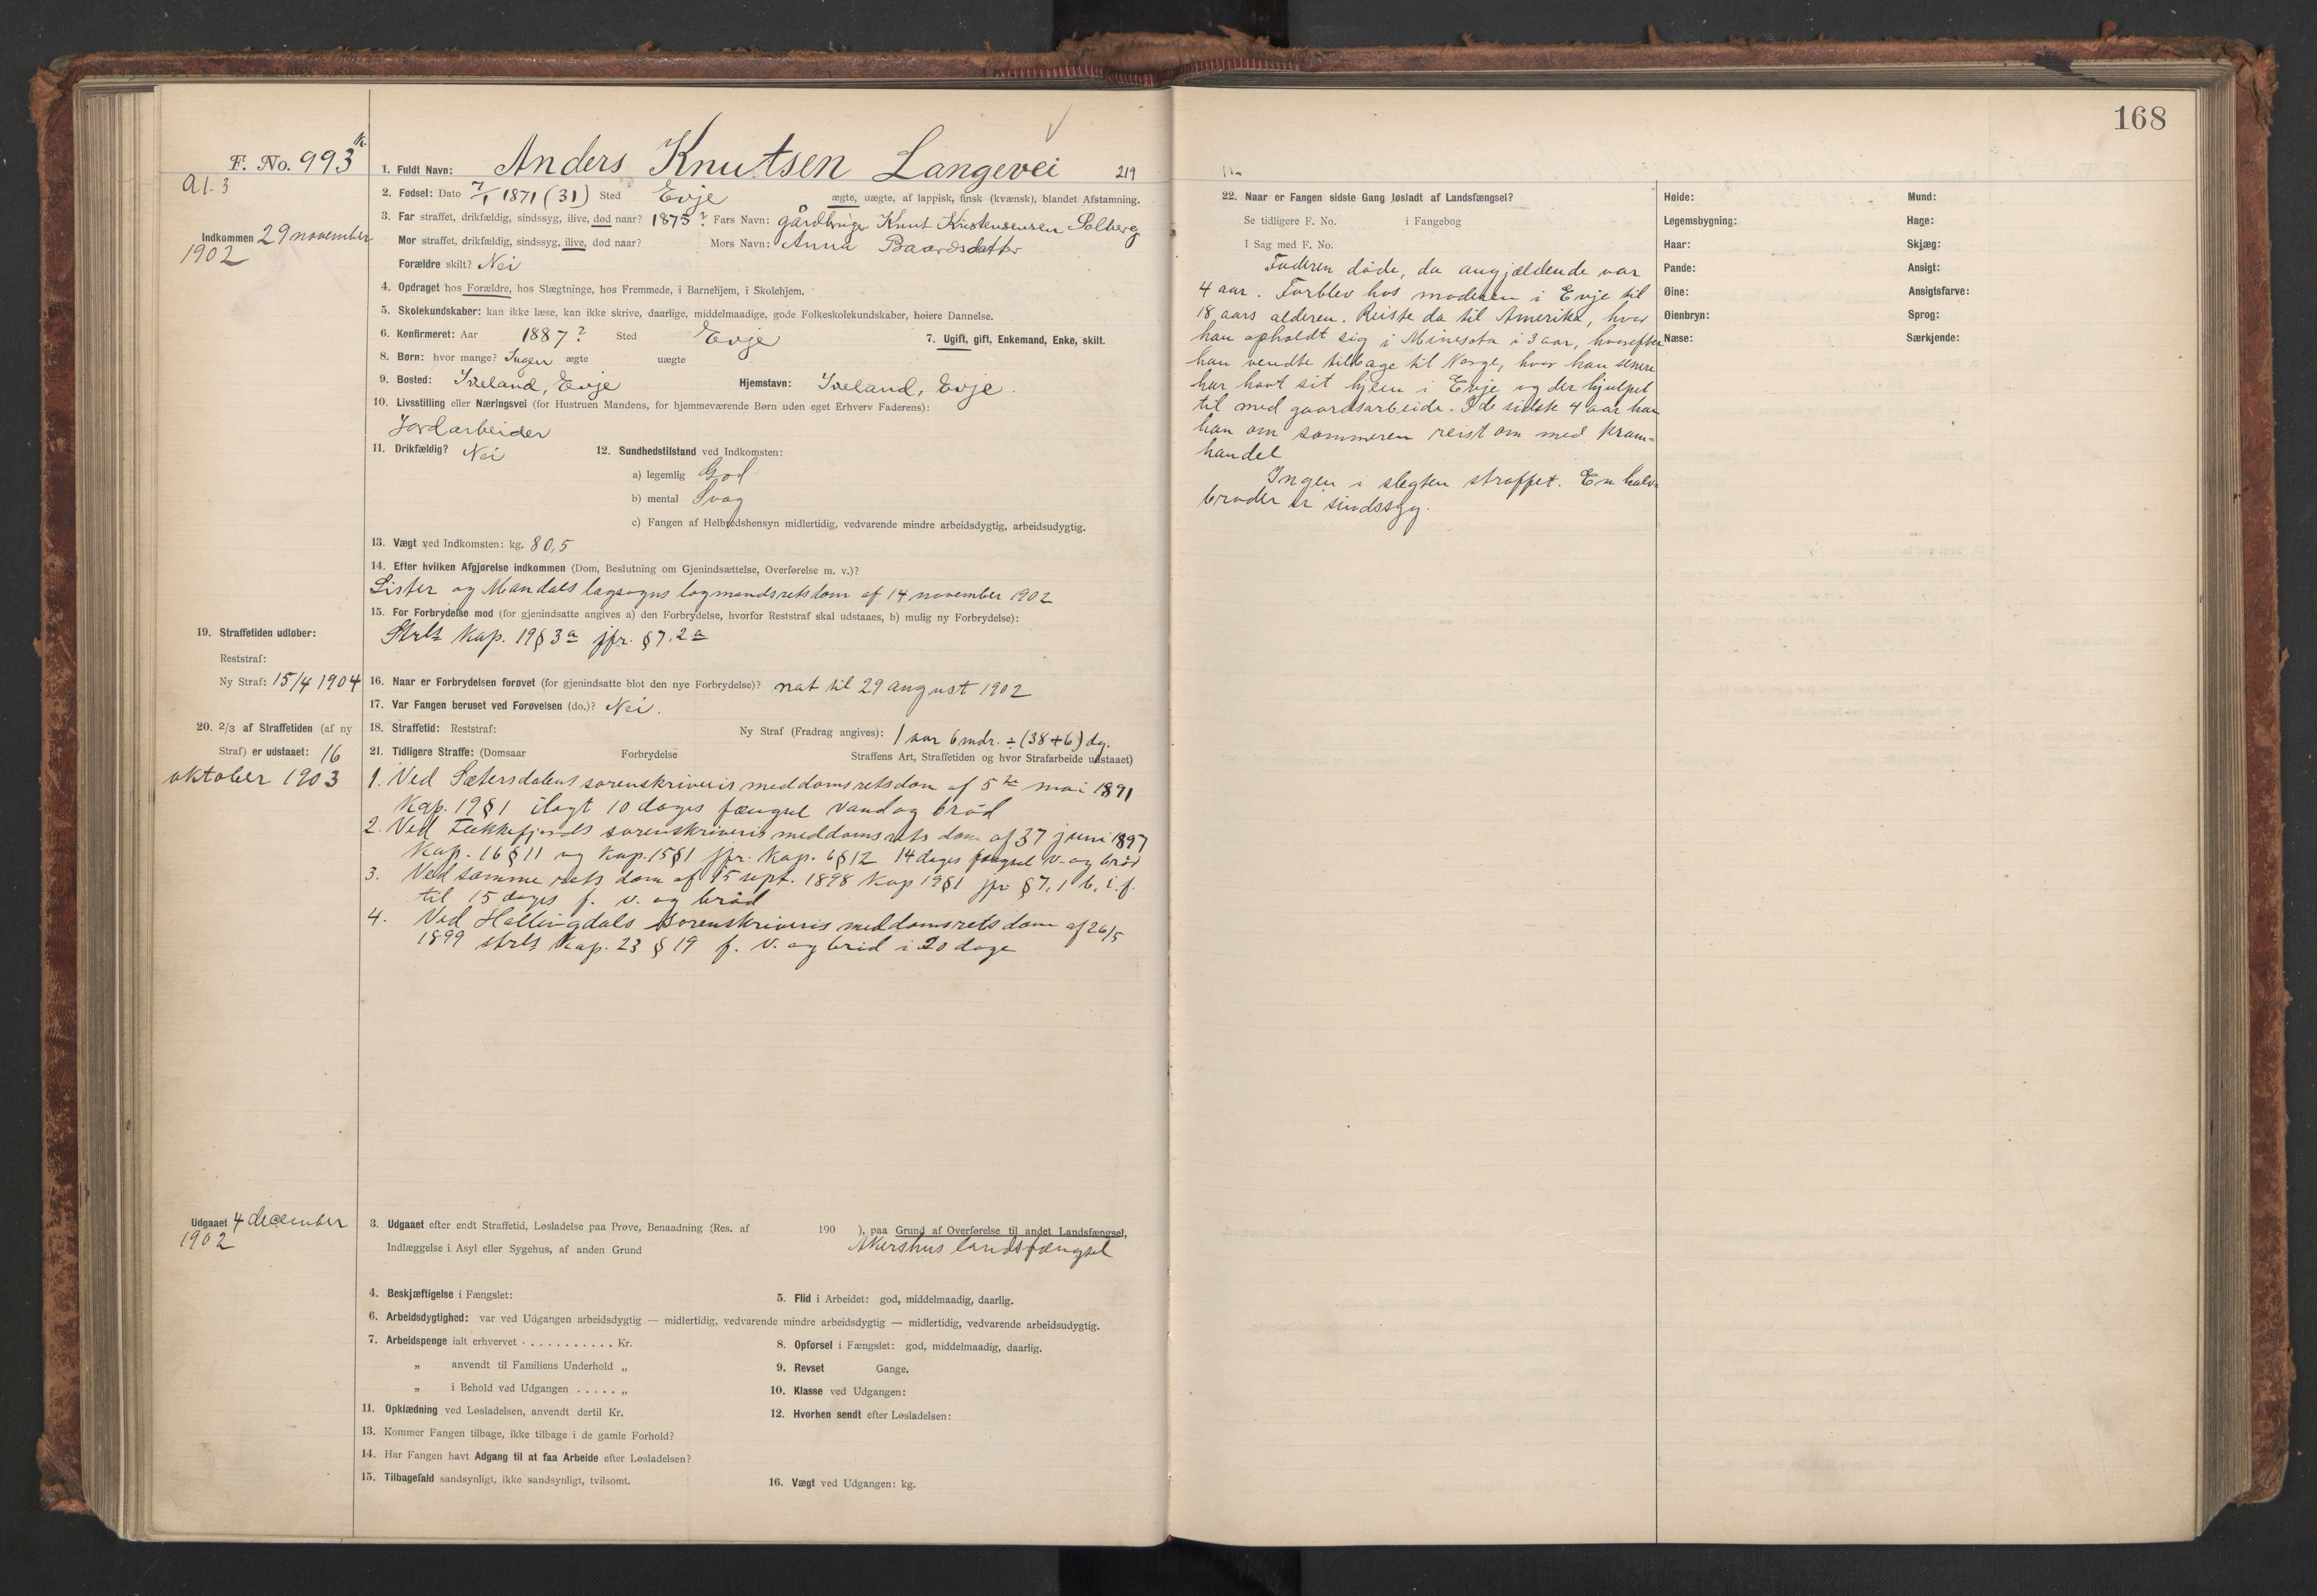 168
F. No. 993
a1. 3
1. Fuldt Navn: Anders Knutsen Langevei 219
2. Fødsel: Dato 7/1 1871 (31) Sted Evje ægte, uægte, af lappisk, finsk (kvænsk), blandet Afstamning.
3. Far straffet, drikfældig, sindssyg, ilive, død naar? 1875? Fars Navn: gårdbruger Knut Kristensensen Solberg
Indkommen 29 november
1902
Mor straffet, drikfældig, sindssyg, ilive, død naar? Mors Navn: Anna Baardsdatter
Forældre skilt? Nei
4. Opdraget hos Forældre, hos Slægtninge, hos Fremmede, i Barnehjem, i Skolehjem.
5. Skolekundskaber: kan ikke læse, kan ikke skrive, daarlige, middelmaadige, gode Folkeskolekundskaber, høiere Dannelse.
6. Konfirmeret: Aar 1887? Sted Evje 7. Ugift, gift, Enkemand, Enke, skilt.
8. Børn: hvor mange? Ingen ægte uægte
9. Bosted: Iveland, Evje Hjemstavn: Iveland, Evje.
10. Livsstilling eller Næringsvei (for Hustruen Mandens, for hjemmeværende Børn uden eget Erhverv Faderens):
Jordarbeider
11. Drikfældig? Nei 12. Sundhedstilstand ved Indkomsten:
a) legemlig God
b) mental Svag
c) Fangen af Helbredshensyn midlertidig, vedvarende mindre arbeidsdygtig, arbeidsudygtig.
13. Vægt ved Indkomsten: kg. 80,5
14. Efter hvilken Afgjørelse indkommen (Dom, Beslutning om Gjenindsættelse, Overførelse m. v.)?
Lister og Mandals lagsogns lagmandsretsdom af 14 november 1902
15. For Forbrydelse mod (for gjenindsatte angives a) den Forbrydelse, hvorfor Reststraf skal udstaaes, b) mulig ny Forbrydelse):
Strl Kap. 19 § 3 a jfr. § 7, 2 a
19. Straffetiden udløber:
Reststraf:
Ny Straf: 15/4 1904
16. Naar er Forbrydelsen forøvet (for gjenindsatte blot den nye Forbrydelse)? nat til 29 august 1902
17. Var Fangen beruset ved Forøvelsen (do.)? Nei.
20. 2/3 af Straffetiden (af ny
Straf) er udstaaet: 16
oktober 1903
18. Straffetid: Reststraf: Ny Straf (Fradrag angives): 1 aar 6 mdr. ÷ (38+6) dg.
21. Tidligere Straffe: (Domsaar Forbrydelse Straffens Art, Straffetiden og hvor Strafarbeide udstaaet)
1. Ved Sætersdalens sorenskriveris meddomsretsdom af 5te mai 1891
Kap. 19 § 1 ilagt 10 dages fængsel vand og brød
2. Ved Flekkefjords sorenskriveris meddomsrets dom af juni 1897
Kap. 16 § 11 og Kap. 15 § 1 jfr. Kap. 6 § 12 14 dages fængsel v. og brød
3. Ved samme rets dom af 15 sept. 1898 Kap 19 § 1 jfr § 7, 1 b, i. f.
til 15 dages f. v. og brød
4. Ved Hallingdals sorenskriveris meddomsrets dom af 26/5
1899 strl Kap. 23 § 19 f. v. og brød i 20 dage
Udgaaet 4 december
1902
3. Udgaaet efter endt Straffetid, Løsladelse paa Prøve, Benaadning (Res. af 190 ), paa Grund af Overførelse til andet Landsfængsel,
Indlæggelse i Asyl eller Sygehus, af anden Grund Akershus landsfængsel
4. Beskjæftigelse i Fængslet: 5. Flid i Arbeidet: god, middelmaadig, daarlig.
6. Arbeidsdygtighed: var ved Udgangen arbeidsdygtig — midlertidig, vedvarende mindre arbeidsdygtig — midlertidig, vedvarende arbeidsudygtig.
7. Arbeidspenge ialt erhvervet . . . . . . . . . . . Kr. 8. Opførsel i Fængslet: god, middelmaadig, daarlig.
„ anvendt til Familiens Underhold „ 9. Revset Gange.
„ i Behold ved Udgangen . . . . . „ 10. Klasse ved Udgangen:
11. Opklædning ved Løsladelsen, anvendt dertil Kr. 12. Hvorhen sendt efter Løsladelsen:
13. Kommer Fangen tilbage, ikke tilbage i de gamle Forhold?
14. Har Fangen havt Adgang til at faa Arbeide efter Løsladelsen?
15. Tilbagefald sandsynligt, ikke sandsynligt, tvilsomt. 16. Vægt ved Udgangen: kg.
22. Naar er Fangen sidste Gang løsladt af Landsfængsel?
Se tidligere F. No. i Fangebog
I Sag med F. No.
Faderen døde, da angjældende var
4 aar. Forblev hos moderen i Evje til
18 aars alderen. Reiste da til Amerika, hvor
han opholdt sig i Minesota i 3 aar, hvorefter
han vendte tilbage til Norge, hvor han senere
har havt sit hjem i Evje og der hjulpet
til med gaardsarbeide. I de sidste 4 aar har
han om sommeren reist om med kram-
handel
Ingen i slegten straffet. En halv-
broder er sindssyg.
Høide: Mund:
Legemsbygning: Hage:
Haar: Skjæg:
Pande: Ansigt:
Øine: Ansigtsfarve:
Øienbryn: Sprog:
Næse: Særkjende: